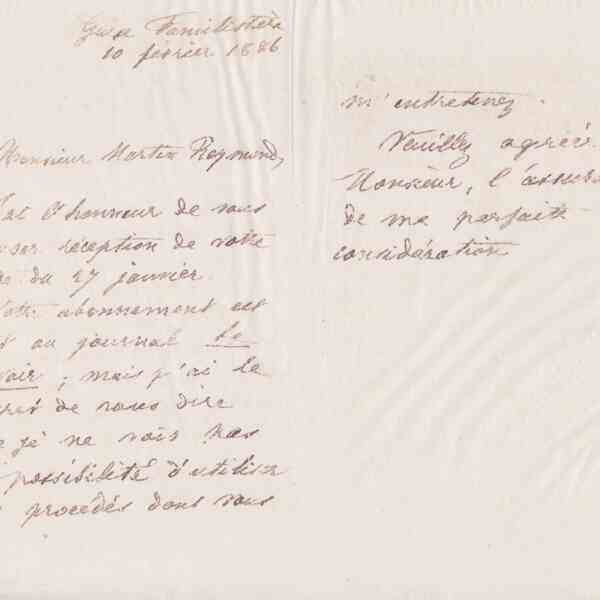 Guise Familistère
10 février 1886
Monsieur Martin Reymond,
l'honneur de vous
réception de votre
du 27 janvier.
abonnement est
au journal Le
; mais j'ai le
de vous dire
je ne vois pas
possibilité d'utiliser
procédés dont vous
m'entretenez.
Veuillez agréer
Monsieur, l'assur
de ma parfaite
considération